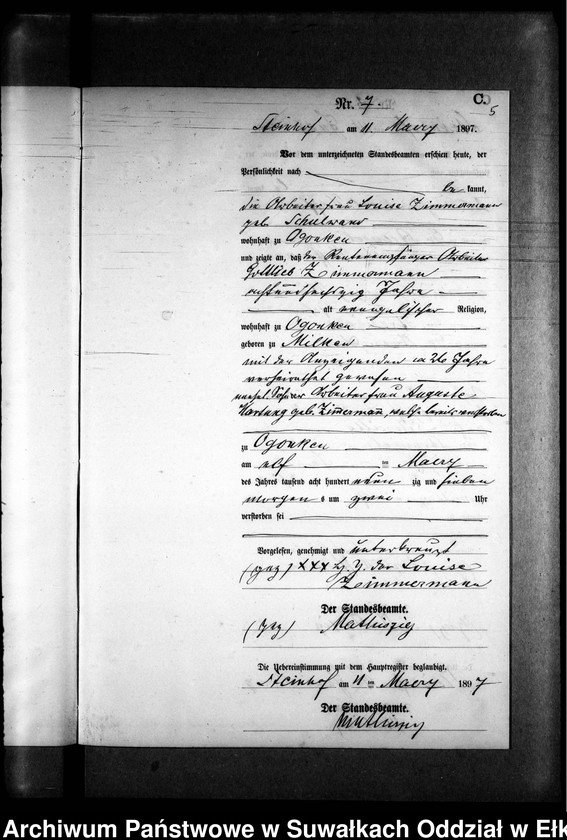 C.
5
Nr. 7.
Steinhof am 11 Maerz 1897.
Vor dem unterzeichneten Standesbeamten erschien heute, der
Persönlichkeit nach
be kannt,
die Arbeiterfrau Louise Zimmermann
geb. Schulwand
wohnhaft zu Ogonken
und zeigte an, daß der Rentenempfänger Arbeiter
Gottlieb Zimmermann
achtundsechzig Jahre
alt evangelischer Religion,
wohnhaft zu Ogonken
geboren zu Milken
mit der Anzeigenden ca 26 Jahre
verheirathet gewesen
Arbeiterfrau Auguste
Hartung geb. Zimmermann, welche bereits verstorben
zu Ogonken
am elf ten Maerz
des Jahres tausend acht hundert neun zig und sieben
morgen s um zwei Uhr
verstorben sei
Vorgelesen, genehmigt und unterkreuzt
(gez) XXX Hz. der Louise
Zimmermann
Der Standesbeamte.
(gez) Mathiszig
Die Uebereinstimmung mit dem Hauptregister beglaubigt.
Steinhof am 11 ten Maerz 1897
Der Standesbeamte.
Mathiszig
Archiwum Państwowe w Suwałkach Oddział w Ełk